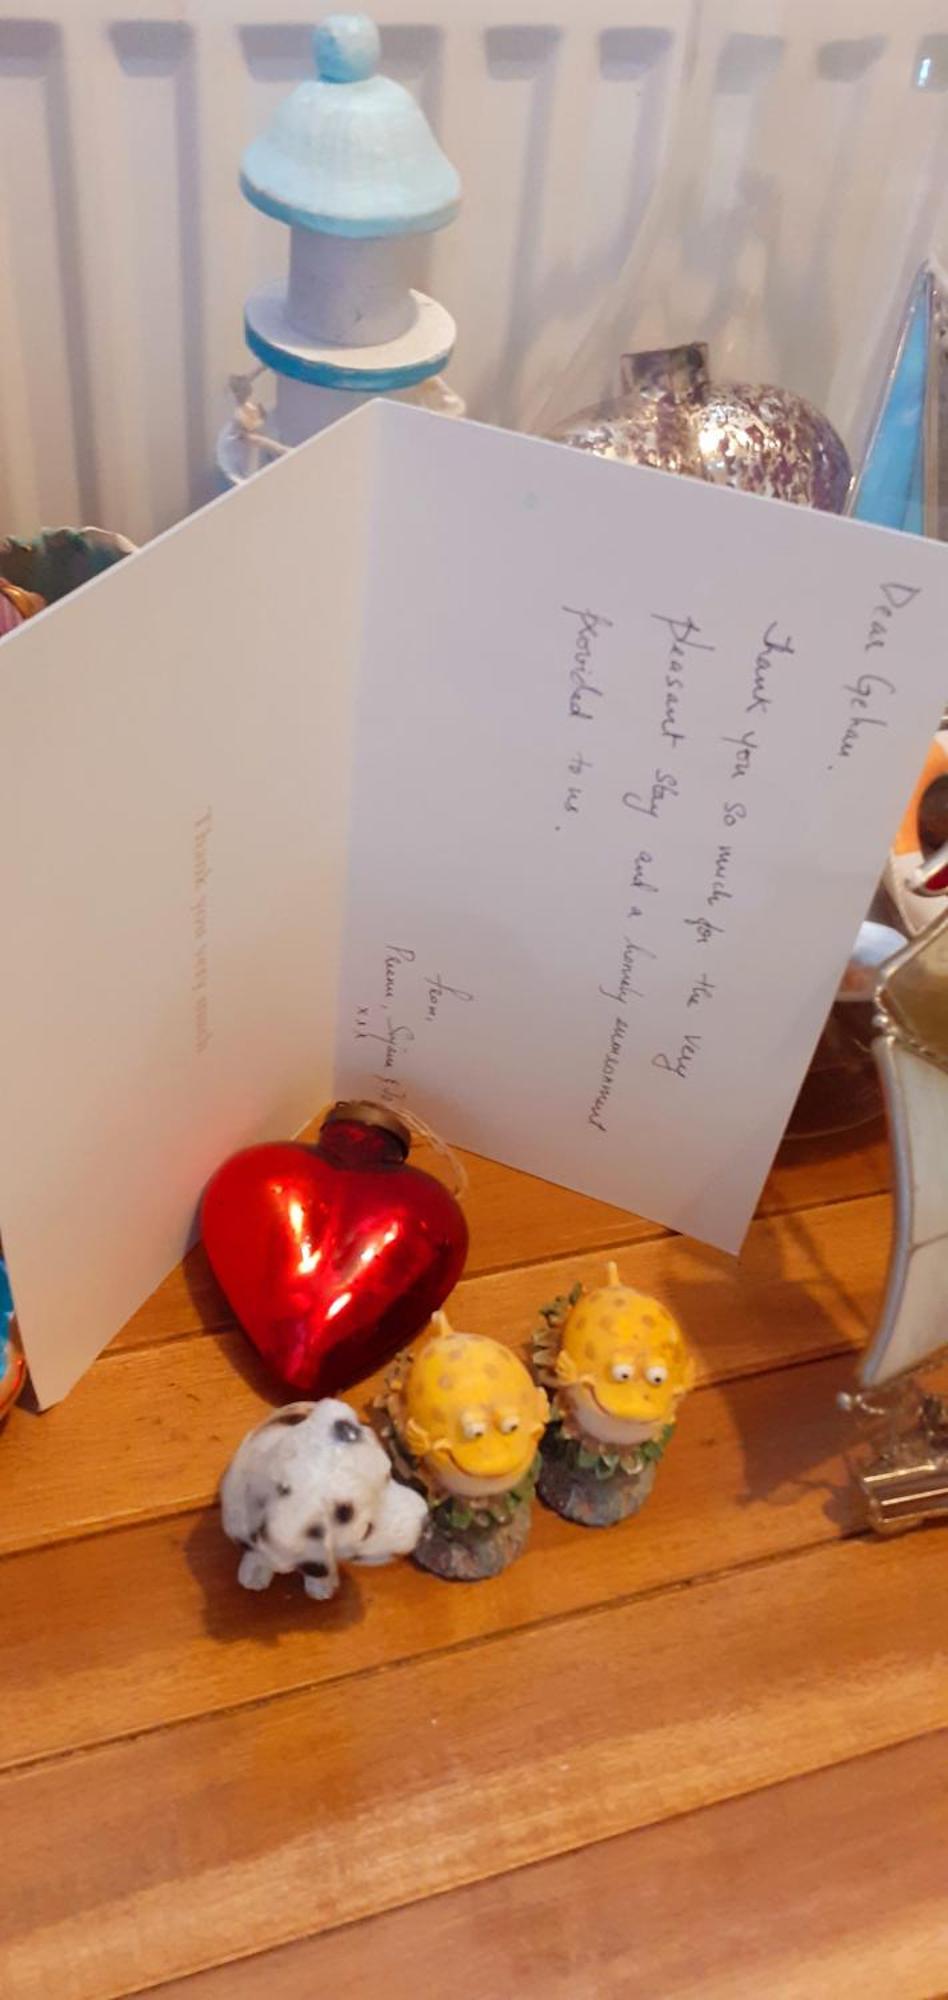 Dear Gehan.
Thank you so much for the very
pleasant stay and a homely environment
provided to us.
from,
xxx
Thank you very much